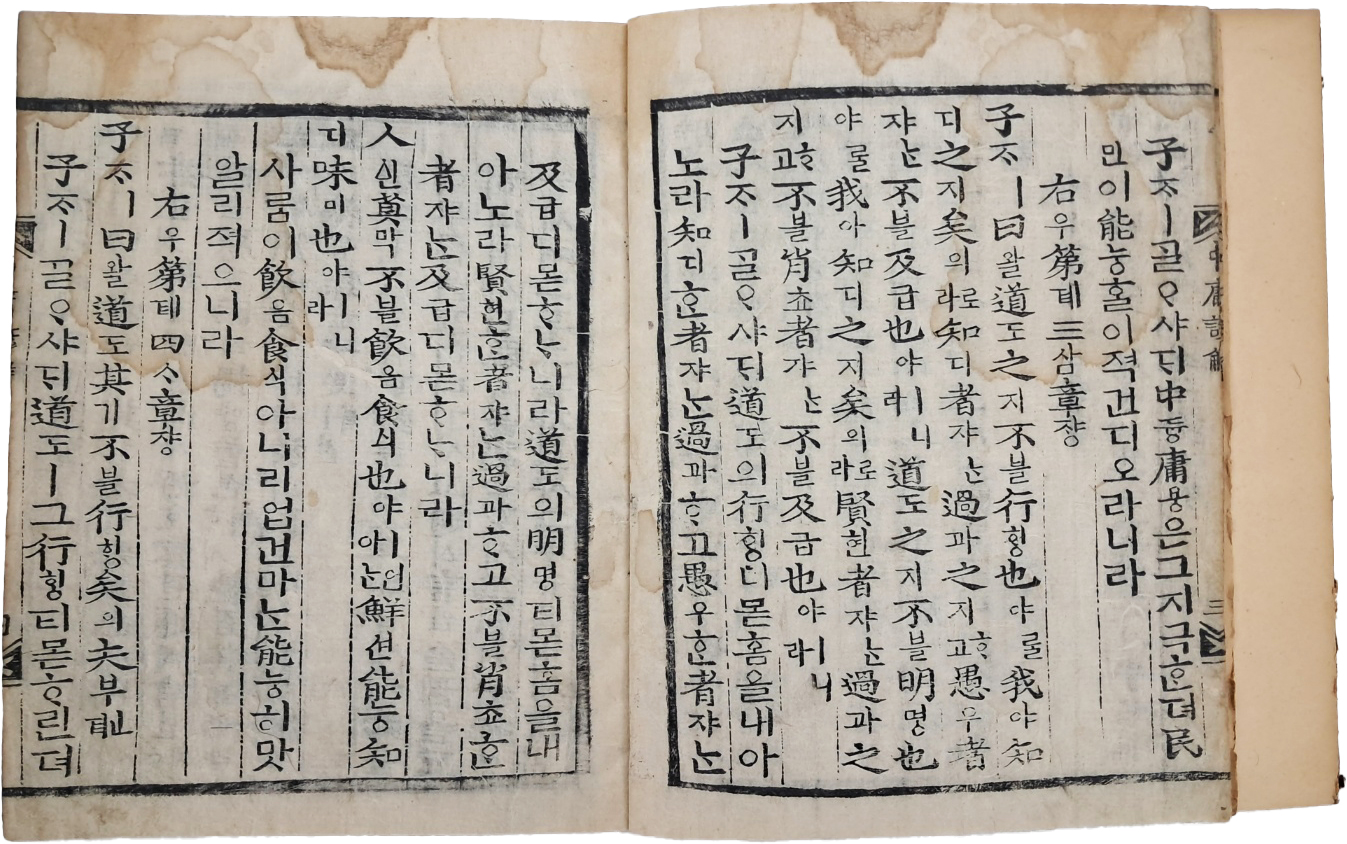 中庸諺解 三
子ᄌᆞㅣᄀᆞᆯᄋᆞ샤ᄃᆡ中듕庸용은그지극ᄒᆞᆫ뎌民
민이能능홀이젹건디오라니라
右우第뎨三삼章쟝
子ᄌᆞㅣ曰왈道도之지不블行ᄒᆡᆼ也야ᄅᆞᆯ我아知
디之지矣의로라知디者쟈ᄂᆞᆫ過과之지ᄒᆞ고愚우者
쟈ᄂᆞᆫ不블及급也야ㅣ니라道도之지不블明명也
야ᄅᆞᆯ我아知디之지矣의로라賢현者쟈ᄂᆞᆫ過과之
지ᄒᆞ고不블肖쵸者쟈ᄂᆞᆫ不블及급也야ㅣ니라
子ᄌᆞㅣᄀᆞᆯᄋᆞ샤ᄃᆡ道도의行ᄒᆡᆼ티몯홈을내아
노라知디ᄒᆞᆫ者쟈ᄂᆞᆫ過과ᄒᆞ고愚우ᄒᆞᆫ者쟈ᄂᆞᆫ
及급디몯ᄒᆞᄂᆞ니라道도의明명티몯홈을내
아노라賢현ᄒᆞᆫ者쟈ᄂᆞᆫ過과ᄒᆞ고不블肖쵸ᄒᆞᆫ
者쟈ᄂᆞᆫ及급디몯ᄒᆞᄂᆞ니라
人신莫막不블飮음食식也야ㅣ언마ᄂᆞᆫ鮮션能능知
디味미也야ㅣ니라
사ᄅᆞᆷ이飮음食식아니리업건마ᄂᆞᆫ能능히맛
알리젹으니라
右우第뎨四ᄉᆞ章쟝
子ᄌᆞㅣ曰왈道도其기不블行ᄒᆡᆼ矣의夫부ᅟᅵᆫ뎌
子ᄌᆞㅣᄀᆞᆯᄋᆞ샤ᄃᆡ道도ㅣ그行ᄒᆡᆼ티몯ᄒᆞ린뎌